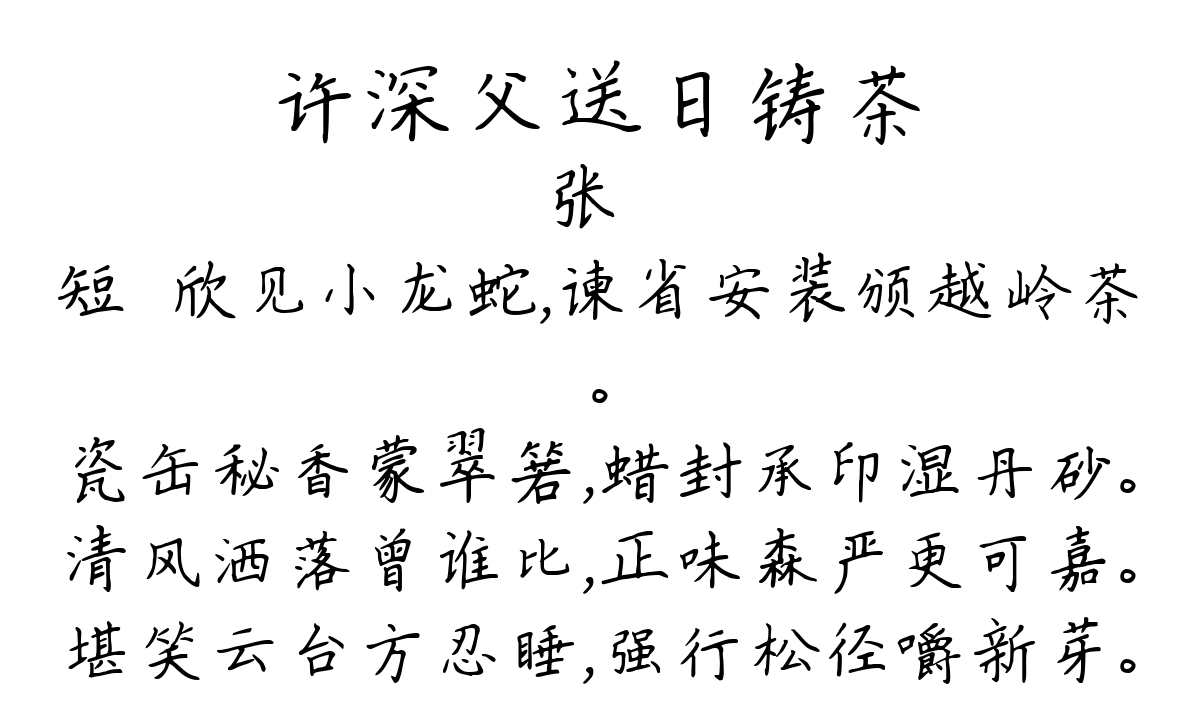 许深父送日铸茶
张
短 欣见小龙蛇,谏省安装颁越岭茶
。
瓷缶秘香蒙翠箬,蜡封承印湿丹砂。
清风洒落曾谁比,正味森严更可嘉。
堪笑云台方忍睡,强行松径嚼新芽。